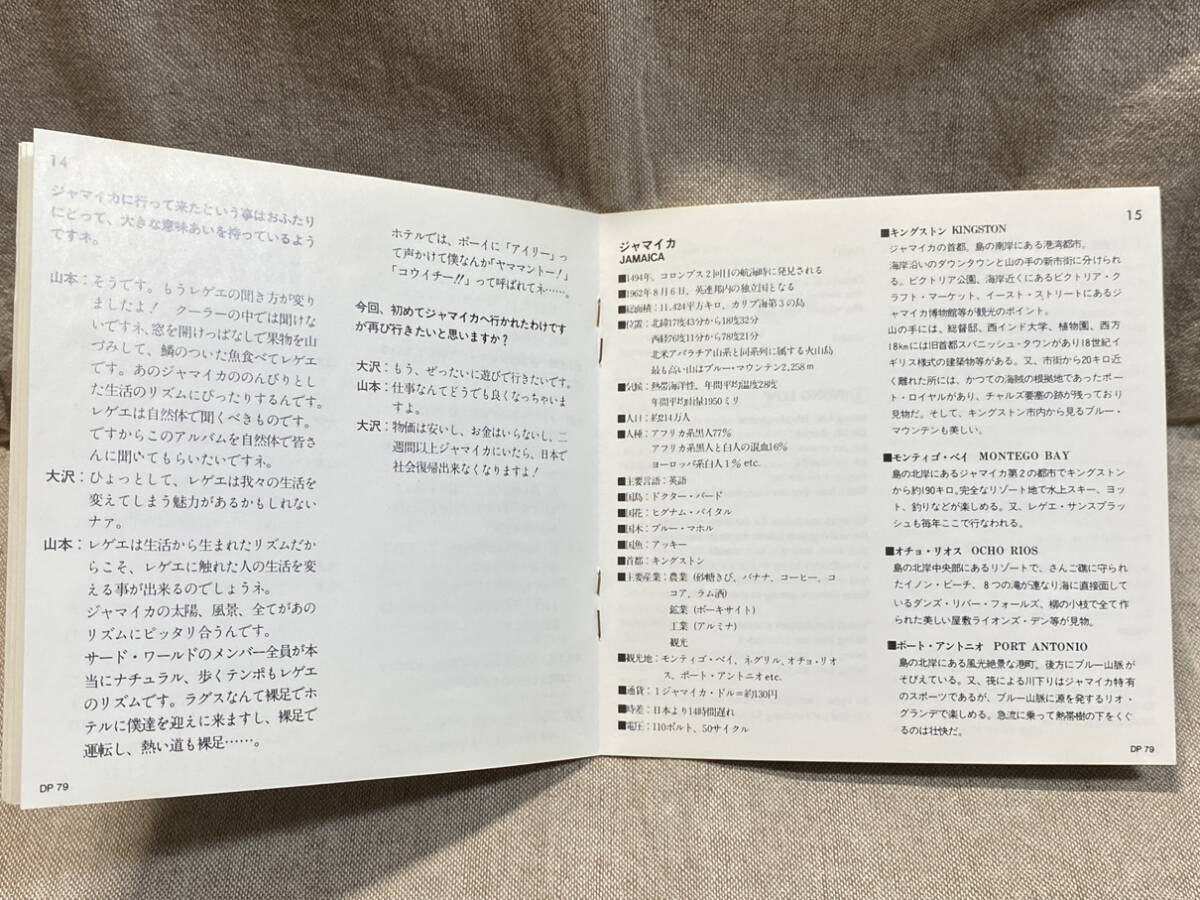 14
ジャマイカに行って来たという事はおふたり
にとって、大きな意味あいを持っているよう
ですネ。
山本：そうです。もうレゲエの聞き方が変り
ましたよ！　クーラーの中では聞けな
いですネ、窓を開けっぱなしで果物を山
づみして、鱗のついた魚食べてレゲエ
です。あのジャマイカののんびりとし
た生活のリズムにぴったりするんです。
レゲエは自然体で聞くべきものです。
ですからこのアルバムを自然体で皆さ
んに聞いてもらいたいですネ。
大沢：ひょっとして、レゲエは我々の生活を
変えてしまう魅力があるかもしれない
ナァ。
山本：レゲエは生活から生まれたリズムだか
らこそ、レゲエに触れた人の生活を変
える事が出来るのでしょうネ。
ジャマイカの太陽、風景、全てがあの
リズムにピッタリ合うんです。
サード・ワールドのメンバー全員が本
当にナチュラル、歩くテンポもレゲエ
のリズムです。ラグスなんて裸足でホ
テルに僕達を迎えに来ますし、裸足で
運転し、熱い道も裸足……。
ホテルでは、ボーイに「アイリー」っ
て声かけて僕なんか「ヤママントー！」
「コウイチー!!」って呼ばれてネ……。
今回、初めてジャマイカへ行かれたわけです
が再び行きたいと思いますか？
大沢：もう、ぜったいに遊びで行きたいです。
山本：仕事なんてどうでも良くなっちゃいま
すよ。
大沢：物価は安いし、お金はいらないし、二
週間以上ジャマイカにいたら、日本で
社会復帰出来なくなりますよ！
DP 79
15
ジャマイカ
JAMAICA
■1494年、コロンブス2回目の航海時に発見される
■1962年8月6日、英連邦内の独立国となる
■総面積：11.424平方キロ、カリブ海第3の島
■位置：北緯17度43分から18度32分
西経76度11分から78度21分
北米アパラチア山系と同系列に属する火山島
最も高い山はブルー・マウンテン2,258m
■気候：熱帯海洋性、年間平均温度28度
年間平均雨量1950ミリ
■人口：約214万人
■人種：アフリカ系黒人77％
アフリカ系黒人と白人の混血16％
ヨーロッパ系白人1％ etc.
■主要言語：英語
■国鳥：ドクター・バード
■国花：ヒグナム・バイタル
■国木：ブルー・マホル
■国魚：アッキー
■首都：キングストン
■主要産業：農業（砂糖きび、バナナ、コーヒー、コ
コア、ラム酒）
鉱業（ボーキサイト）
工業（アルミナ）
観光
■観光地：モンティゴ・ベイ、ネグリル、オチョ・リオ
ス、ポート・アントニオetc.
■通貨：1ジャマイカ・ドル＝約130円
■時差：日本より14時間遅れ
■電圧：110ボルト、50サイクル
■キングストン KINGSTON
ジャマイカの首都。島の南岸にある港湾都市。
海岸沿いのダウンタウンと山の手の新市街に分けられ
る。ビクトリア公園、海岸近くにあるビクトリア・ク
ラフト・マーケット、イースト・ストリートにあるジ
ャマイカ博物館等が観光のポイント。
山の手には、総督邸、西インド大学、植物園、西方
18kmには旧首都スパニッシュ・タウンがあり18世紀イ
ギリス様式の建築物等がある。又、市街から20キロ近
く離れた所には、かつての海賊の根拠地であったポー
ト・ロイヤルがあり、チャルズ要塞の跡が残っており
見物だ。そして、キングストン市内から見るブルー・
マウンテンも美しい。
■モンティゴ・ベイ MONTEGO BAY
島の北岸にあるジャマイカ第2の都市でキングストン
から約190キロ。完全なリゾート地で水上スキー、ヨッ
ト、釣りなどが楽しめる。又、レゲエ・サンスプラッ
シュも毎年ここで行なわれる。
■オチョ・リオス OCHO RIOS
島の北岸中央部にあるリゾートで、さんご礁に守られ
たイノン・ビーチ、8つの滝が連なり海に直接面して
いるダンズ・リバー・フォールズ、椰の小枝で全て作
られた美しい屋敷ライオンズ・デン等が見物。
■ポート・アントニオ PORT ANTONIO
島の北岸にある風光絶景な港町。後方にブルー山脈が
そびえている。又、筏による川下りはジャマイカ特有
のスポーツであるが、ブルー山脈に源を発するリオ・
グランデで楽しめる。急流に乗って熱帯樹の下をくぐ
るのは壮快だ。
DP 79